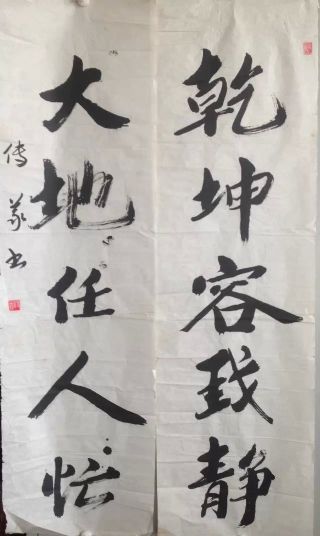 乾坤容我静
大地任人忙
传义书